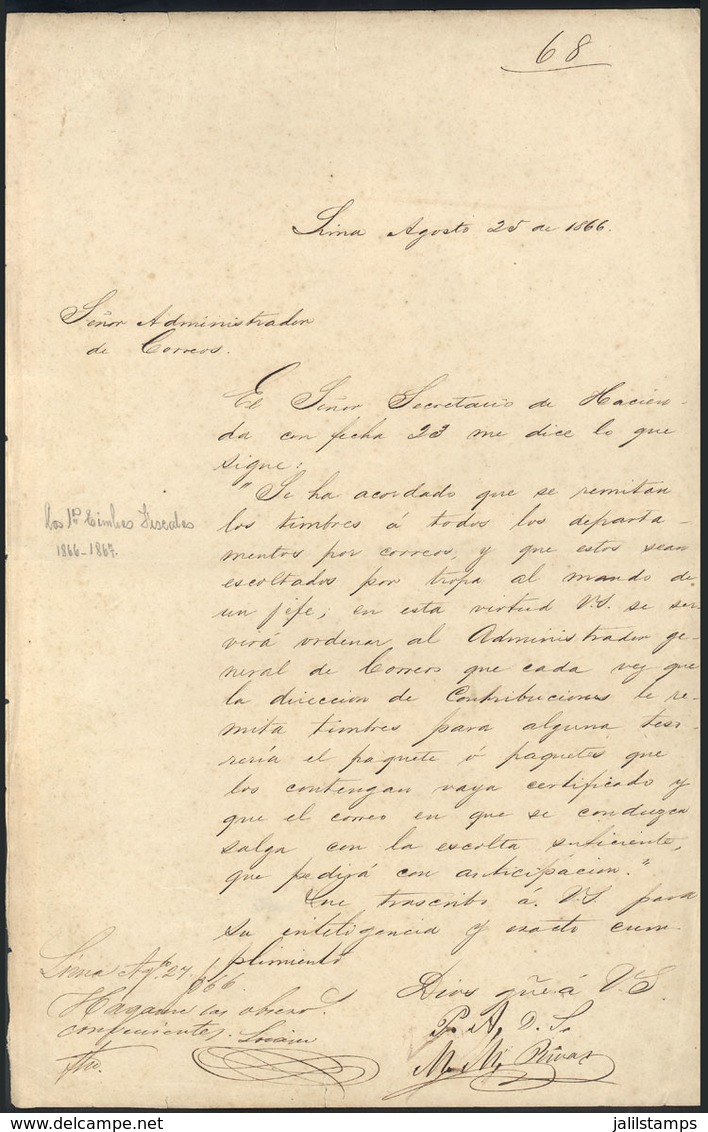 68
Lima Agosto 25 de 1866.
Señor Administrador
de Correos.
El Señor Secretario de Hacien-
da con fecha 23 me dice lo que
sigue:
"Se ha acordado que se remitan
los timbres á todos los departa-
mentos por correos, y que estos sean
escoltados por tropa al mando de
un jefe; en esta virtud V.S. se ser-
virá ordenar al Administrador ge-
neral de Correos que cada vez que
la direccion de Contribuciones le re-
mita timbres para alguna teso-
rería el paquete ó paquetes que
los contengan vaya certificado y
que el correo en que se conduzca
salga con la escolta suficiente,
que pedirá con anticipacion."
Que trascribo á V.S. para
su inteligencia y exacto cum-
plimiento
Dios gûe á V.S.
P. A. D. S.
M. M. Rivas
Los 1os Timbres Fiscales
1866-1867.
Lima Agto 27/866.
Haganse las observ.
convenientes.
delcampe.net
jalilstamps